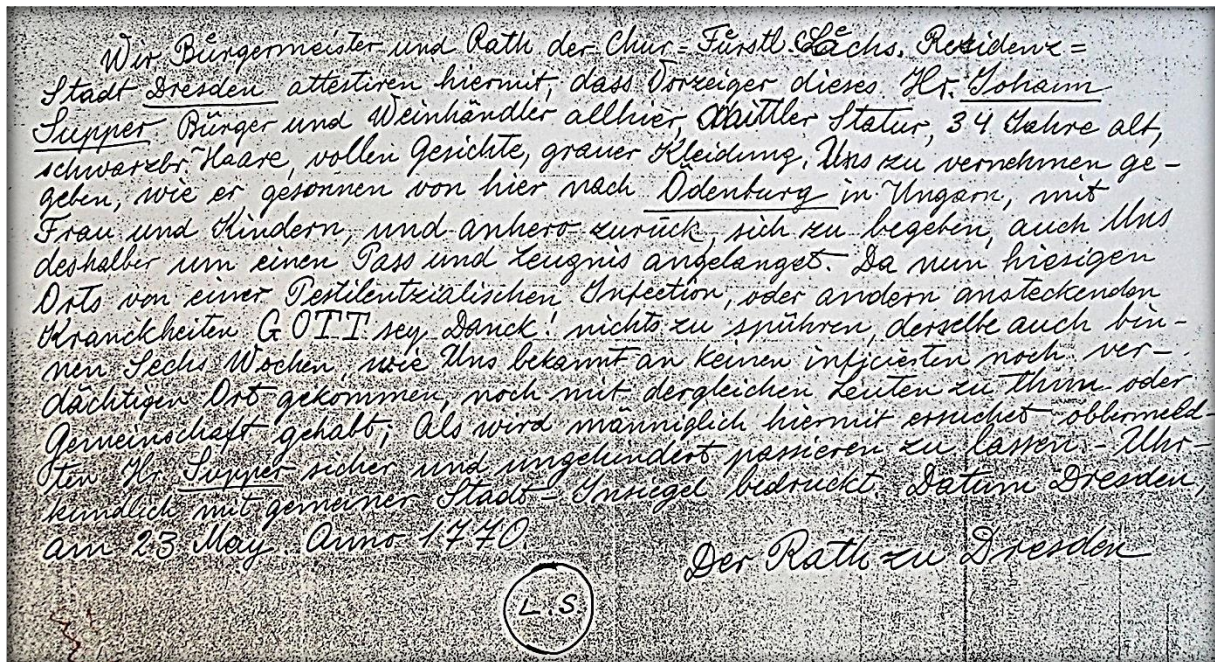 Wir Bürgermeister und Rath der Chur= Fürstl. Sächs. Residenz=
Stadt Dresden attestiren hiermit, dass Vorzeiger dieses Hr. Johann
Supper Bürger und Weinhändler allhier, Mittler Statur, 34 Jahre alt,
schwarzbr. Haare, vollen Gesichts, grauer Kleidung. Uns zu vernehmen ge-
geben, wie er gesonnen von hier nach Ödenburg in Ungarn, mit
Frau und Kindern, und anhero zurück, sich zu begeben, auch Uns
deshalber um einen Pass und Zeugnis angelanget. Da nun hiesigen
Orts von einer Pestilentzialischen Infection, oder andern ansteckenden
Kranckheiten GOTT sey Danck! nichts zu spühren, derselbe auch bin-
nen Sechs Wochen, wie Uns bekannt an keinen inficierten noch ver-
dächtigen Ort gekommen, noch mit dergleichen Leuten zu thun oder
Gemeinschaft gehabt; Als wird männiglich hiermit ersuchet obbermeld-
ten Hr. Supper sicher und ungehindert passieren zu lassen. - Uhr-
kundlich mit gemeiner Stadt- Insiegel bedruckt. Datum Dresden,
am 23 May. Anno 1770.
Der Rath zu Dresden
L.S.